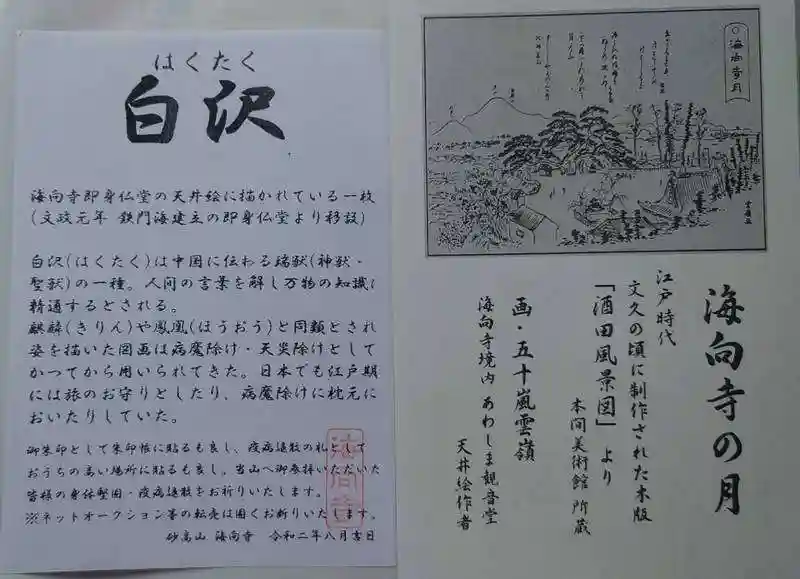 はくたく
白沢
海向寺即身仏堂の天井絵に描かれている一枚
(文政元年 鉄門海建立の即身仏堂より移設)
白沢(はくたく)は中国に伝わる瑞獣(神獣・
聖獣)の一種。人間の言葉を解し万物の知識に
精通するとされる。
麒麟(きりん)や鳳凰(ほうおう)と同類とされ
姿を描いた図画は病魔除け・天災除けとして
かつてから用いられてきた。日本でも江戸期
には旅のお守りとしたり、病魔除けに枕元に
おいたりしていた。
御朱印として朱印帳に貼るも良し、疫病退散の札として
おうちの高い場所に貼るも良し。当山へ御参拝いただいた
皆様の身体堅固・疫病退散をお祈りいたします。
※ネットオークション等の転売は固くお断りいたします。
砂高山 海向寺 令和二年八月吉日
海向寺
海向寺月
海向寺の月
江戸時代
文久の頃に制作された木版
「酒田風景図」より
本間美術館 所蔵
画・五十嵐雲嶺
海向寺境内 あわしま観音堂
天井絵作者